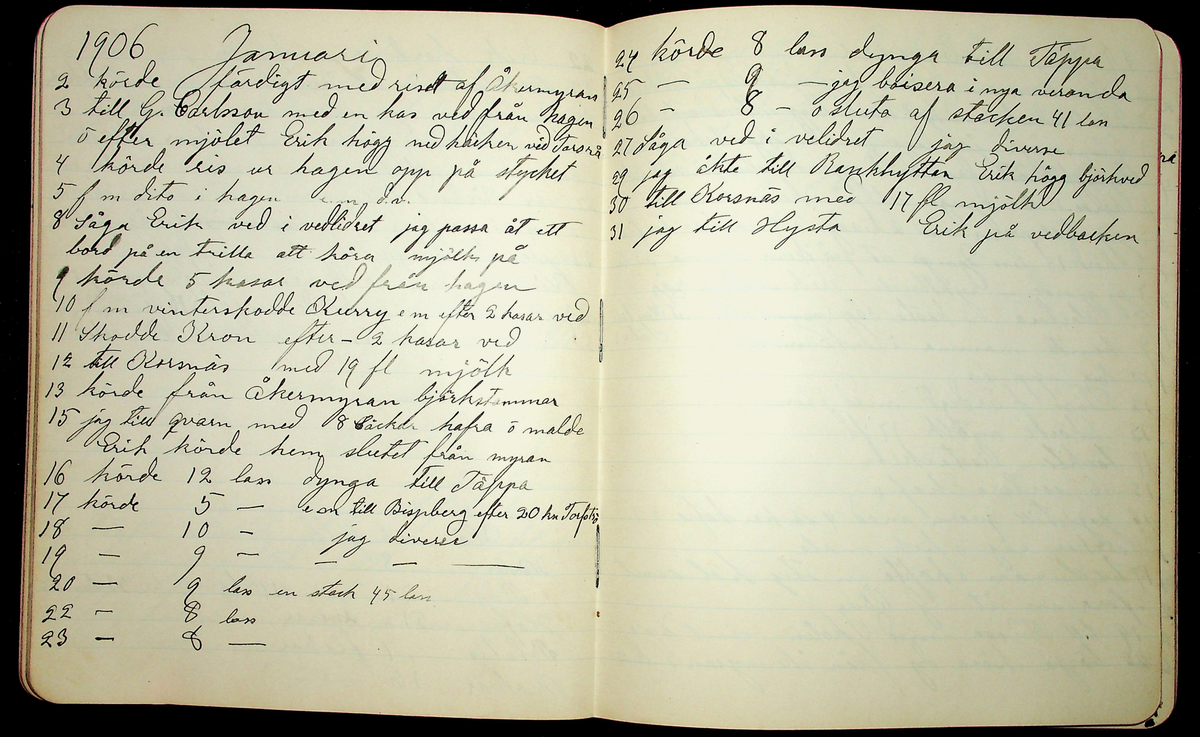 1906 Januari
2 körde färdigt med riset af Åkermyran
3 till G. Carlsson med en kas ved från hagen
ö efter mjölet Erik högg ned häcken ved
4 körde ris ur hagen opp på stycket
5 f m dito i hagen e. m d.o.
8 Såga Erik ved i vedlidret jag passa åt ett
bord på en trilla att köra mjölk på
9 körde 5 kasar ved från hagen
10 f m vinterskodde Kurry e m efter 2 kasar ved
11 Skodde Kron efter - 2 kasar ved
12 till Korsnäs med 19 fl mjölk
13 körde från Åkermyran björkstammar
15 jag till qvarn med 8 säckar hafra ö malde
Erik körde hem slutet från myran
16 körde 12 lass dynga till Täppa
17 körde 5 — e m till Bispberg efter 20 hn
18 — 10 — jag diverse
19 — 9 — — — —
20 — 9 lass en stack 45 lass
22 — 8 lass
23 — 8 —
24 körde 8 lass dynga till Täppa
25 — 9 — jag boisera i nya veranda
26 — 8 — ö sluta af stacken 41 lass
27 Såga ved i velidret jag diverse
29 jag åkte till Rankhyttan Erik högg björkved
30 till Korsnäs med 17 fl mjölk
31 jag till Hysta Erik på vedbacken